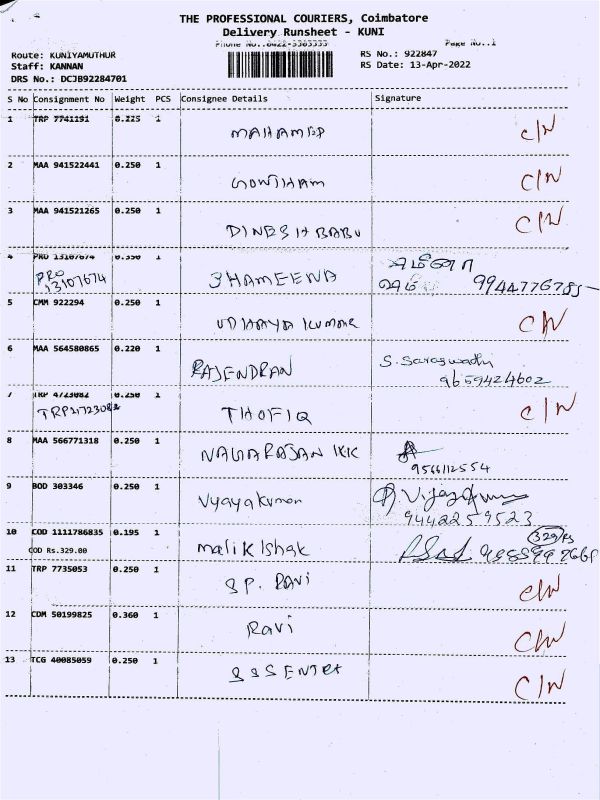 THE PROFESSIONAL COURIERS, Coimbatore
Delivery Runsheet - KUNI
Phone No.:0422-3303333 Page No.:1
Route: KUNIYAMUTHUR RS No.: 922847
Staff: KANNAN RS Date: 13-Apr-2022
DRS No.: DCJB92284701
S No Consignment No Weight PCS Consignee Details Signature
1 TRP 7741191 0.225 1 C/N
2 MAA 941522441 0.250 1 GOWTHAM C/N
3 MAA 941521265 0.250 1 DINESH BABU C/N
4 PRO 13107674 0.350 1 SHAMEENA ஷமீனா
PRO 13107674 9944776785
5 CMM 922294 0.250 1 UDHAYA KUMAR C/N
6 MAA 564580865 0.220 1 RAJENDRAN S. Saraswathi
9659424602
7 TRP 4723082 0.250 1 THOFIQ C/N
8 MAA 566771318 0.250 1 NAGARAJAN KK
9566112554
9 BOD 303346 0.250 1 Vijayakumar
9442259523
10 COD 1111786835 0.195 1 malik Ishak 329/RS
COD Rs.329.00
11 TRP 7735053 0.250 1 SP. RAVi C/N
12 CDM 50199825 0.360 1 Ravi C/N
13 TCG 40085059 0.250 1 C/N